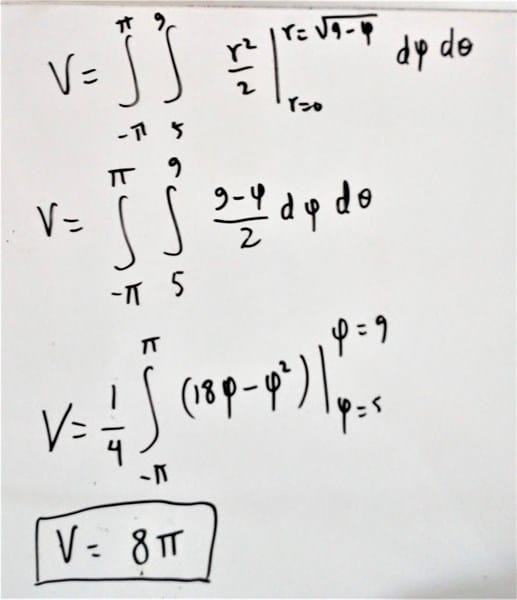 V = ∫_{-π}^{π} ∫_{5}^{9} r²/2 |_{r=0}^{r=√(9-φ)} dφ dθ
V = ∫_{-π}^{π} ∫_{5}^{9} (9-φ)/2 dφ dθ
V = 1/4 ∫_{-π}^{π} (18φ - φ²) |_{φ=5}^{φ=9}
V = 8π